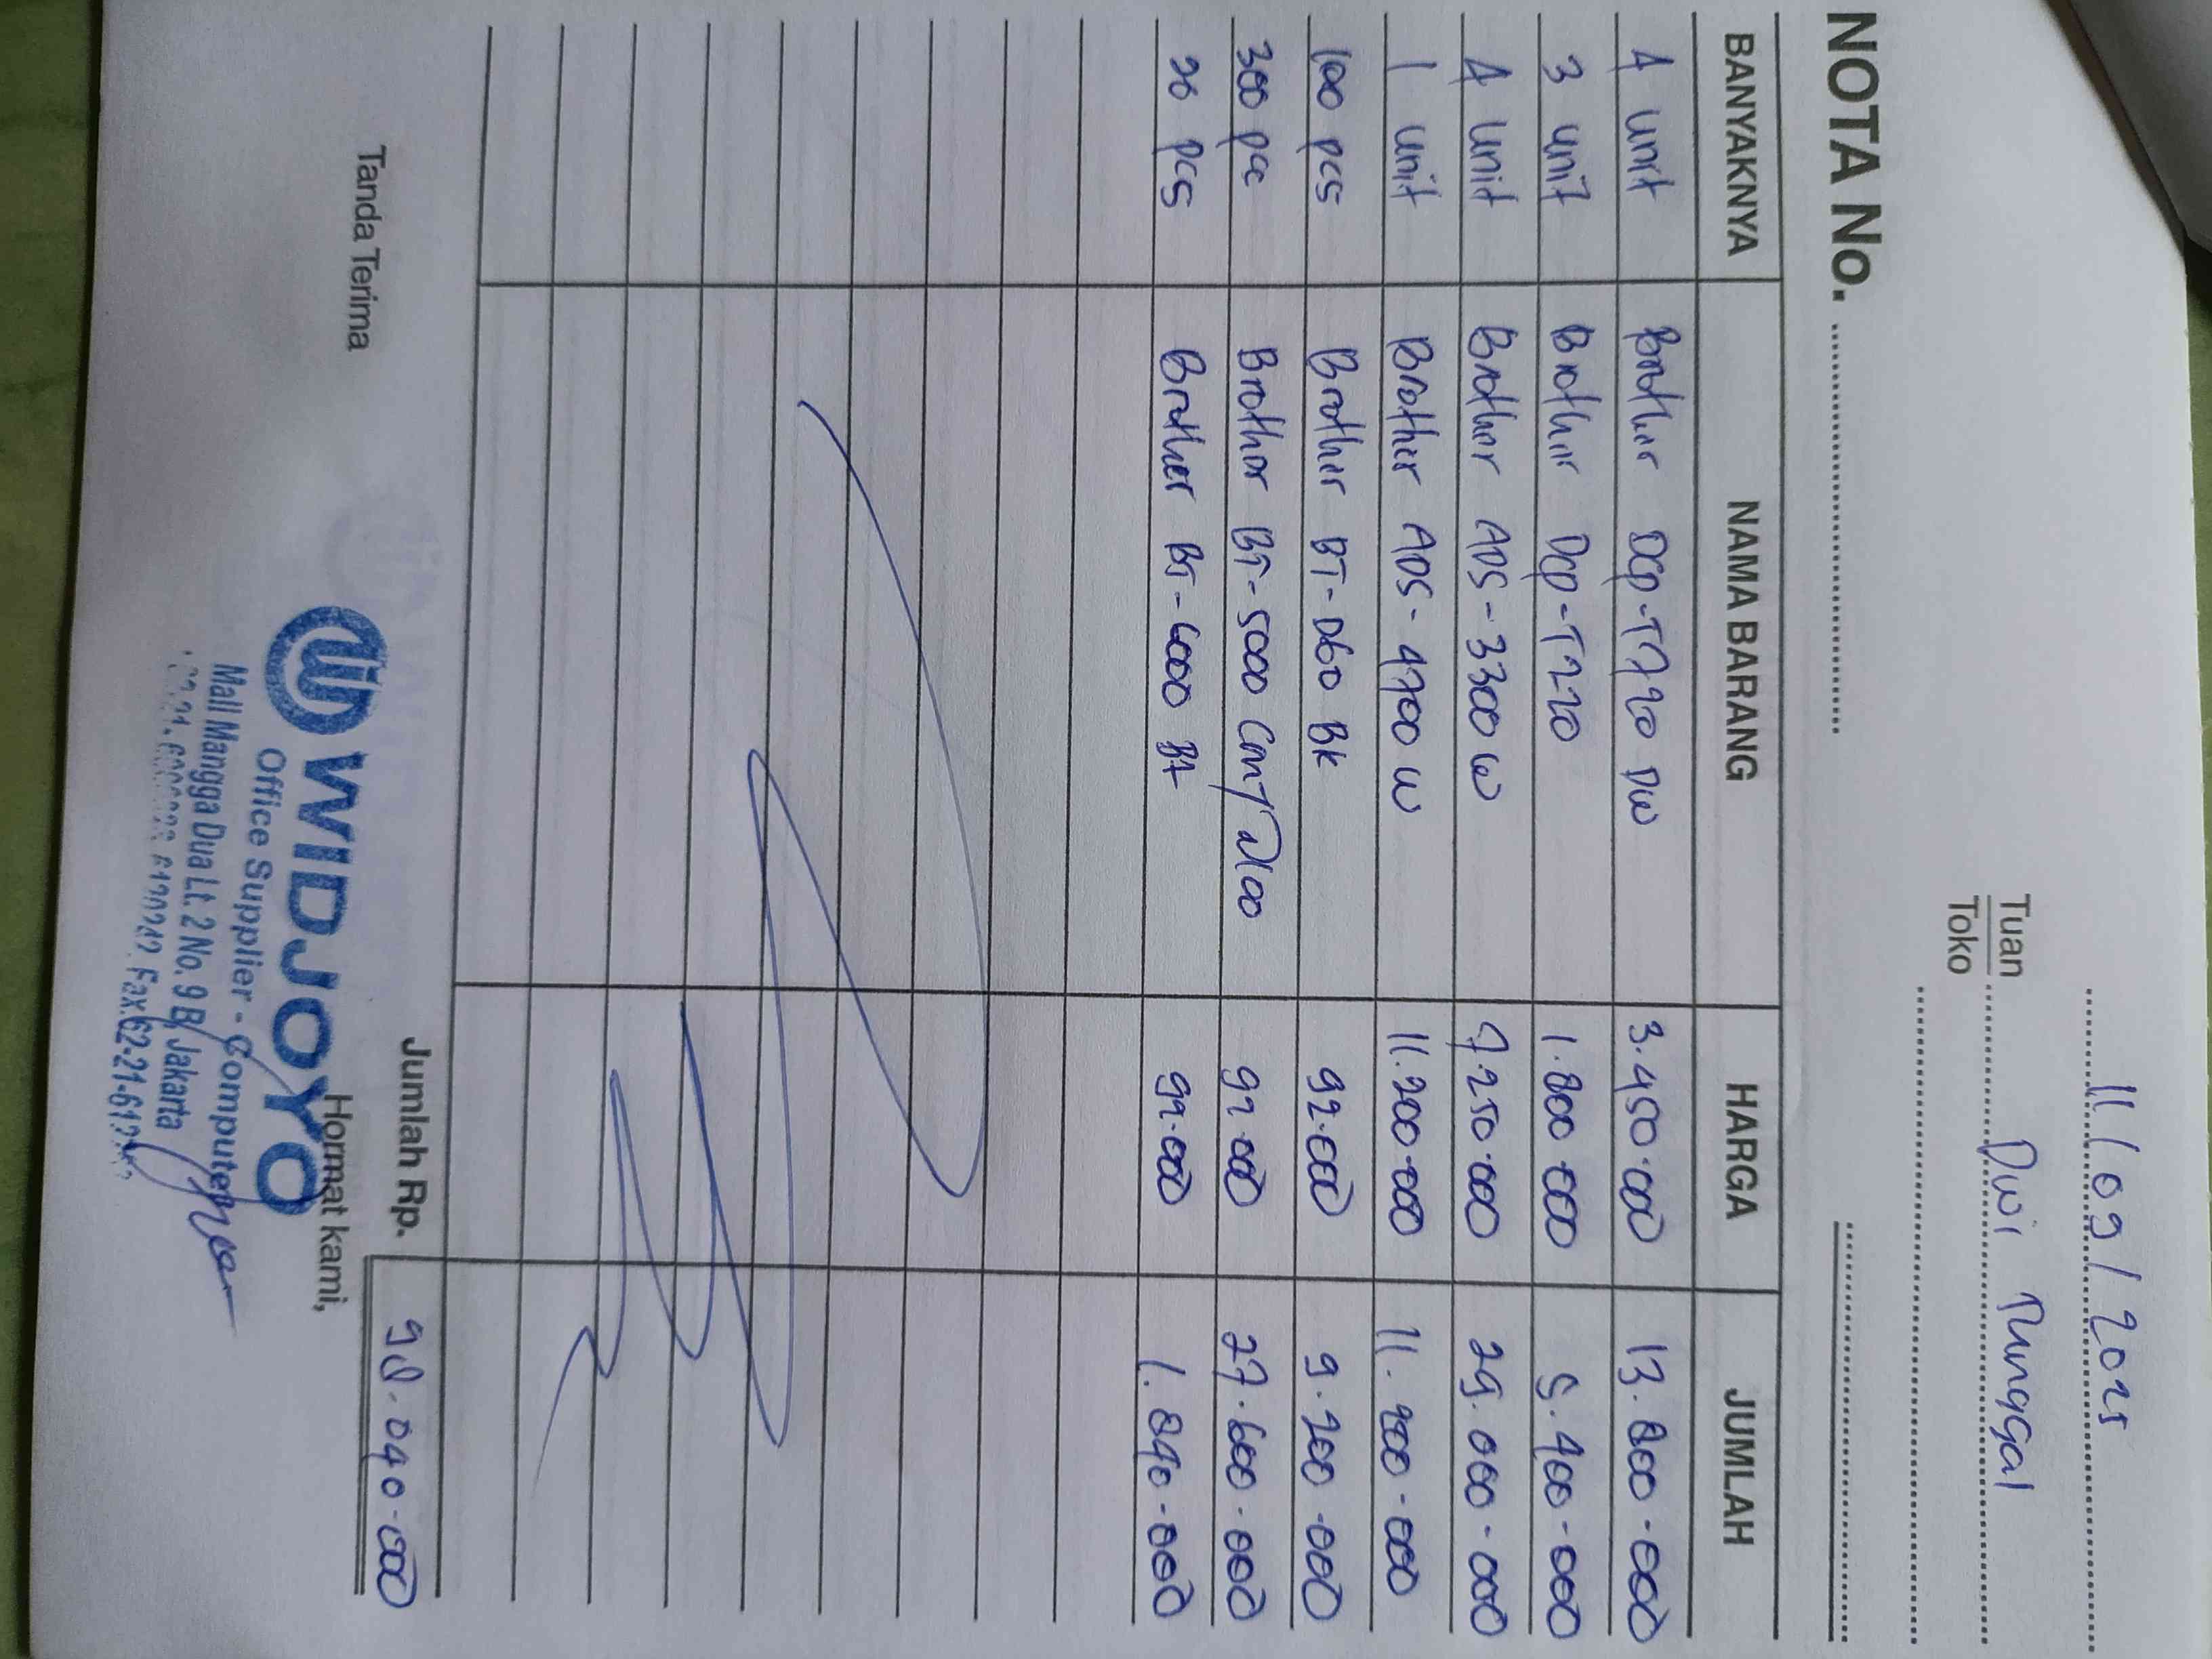 11/09/2025
Tuan Dwi Tunggal
Toko
NOTA No.
BANYAKNYA NAMA BARANG HARGA JUMLAH
4 unit Brother Dcp-T720 DW 3.450.000 13.800.000
3 unit Brother Dcp-T220 1.800.000 5.400.000
4 unit Brother ADS-3300 W 7.250.000 29.000.000
1 unit Brother ADS-4700 W 11.200.000 11.200.000
100 pcs Brother BT-D60 BK 92.000 9.200.000
300 pcs Brother BT-5000 CMY 92.000 27.600.000
20 pcs Brother BT-6000 BK 92.000 1.840.000
Jumlah Rp. 98.040.000
Tanda Terima Hormat kami,
WIDJOYO
Office Supplier - Computer
Mall Mangga Dua Lt. 2 No. 9 B, Jakarta
Fax.62-21-612